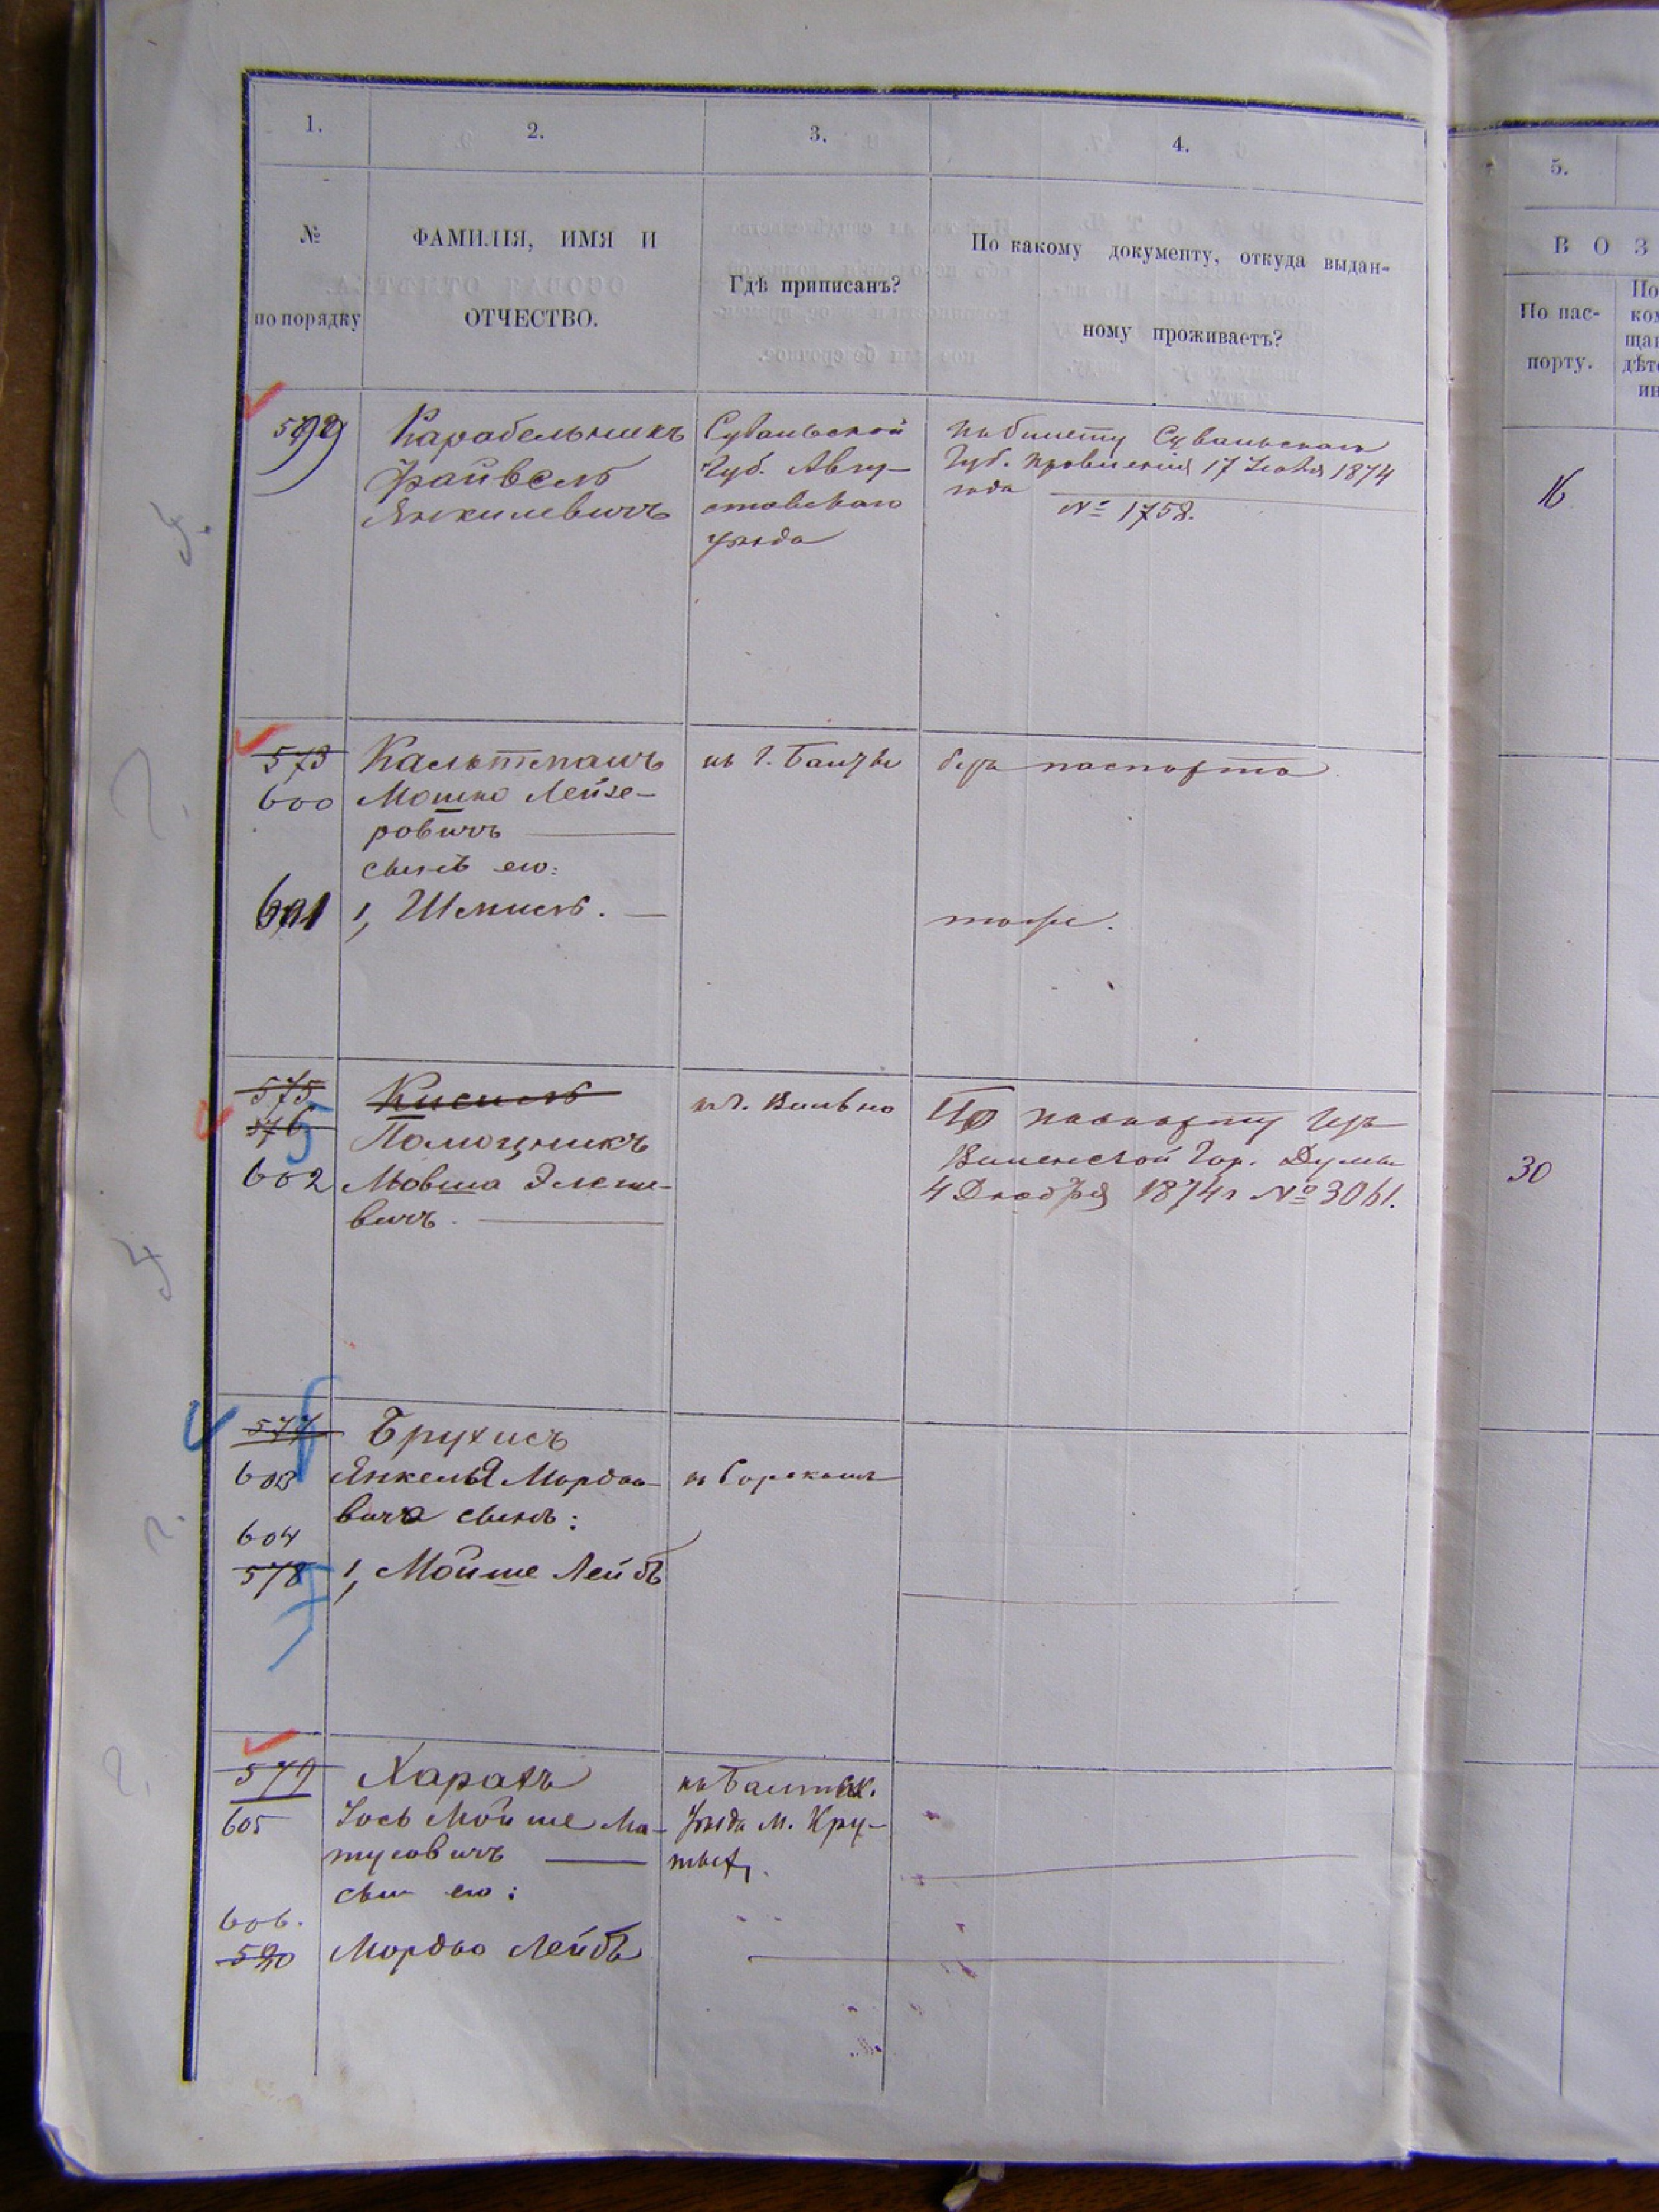 1.
2.
3.
4.
5.
№
по порядку
ФАМИЛІЯ, ИМЯ И
ОТЧЕСТВО.
Гдѣ приписанъ?
По какому документу, откуда выдан-
ному проживаетъ?
В О З
По пас-
порту.
599
Карабельникъ
Файвель
Янкилевичъ
Сувальской
Губ. Авгу-
стовскаго
уѣзда
по билету Сувальскаго
Губ. Правленія 17 1874
года
№ 1758.
16
573
600
Кальтманъ
Мошко Лейзе-
ровичъ
сынъ его:
601
1, Шмиль.
въ г. Балтѣ
безъ паспорта
тоже.
575
576
602
Кисиль
Помощникъ
Мовша
вичъ
въ г. Вильно
По паспорту изъ
Виленской Гор. Думы
4 Декабря 1874 г № 3061.
30
577
603
Брухисъ
Янкель Мордко-
вичъ сынъ:
604
578
1, Мойше Лейбъ
въ Сорокахъ
579
605
Харахъ
Іось Мойше Ма-
тусовичъ
сынъ его:
606.
580
Мордко Лейбъ
въ Балтск.
уѣзда м. Кру-
тыхъ.